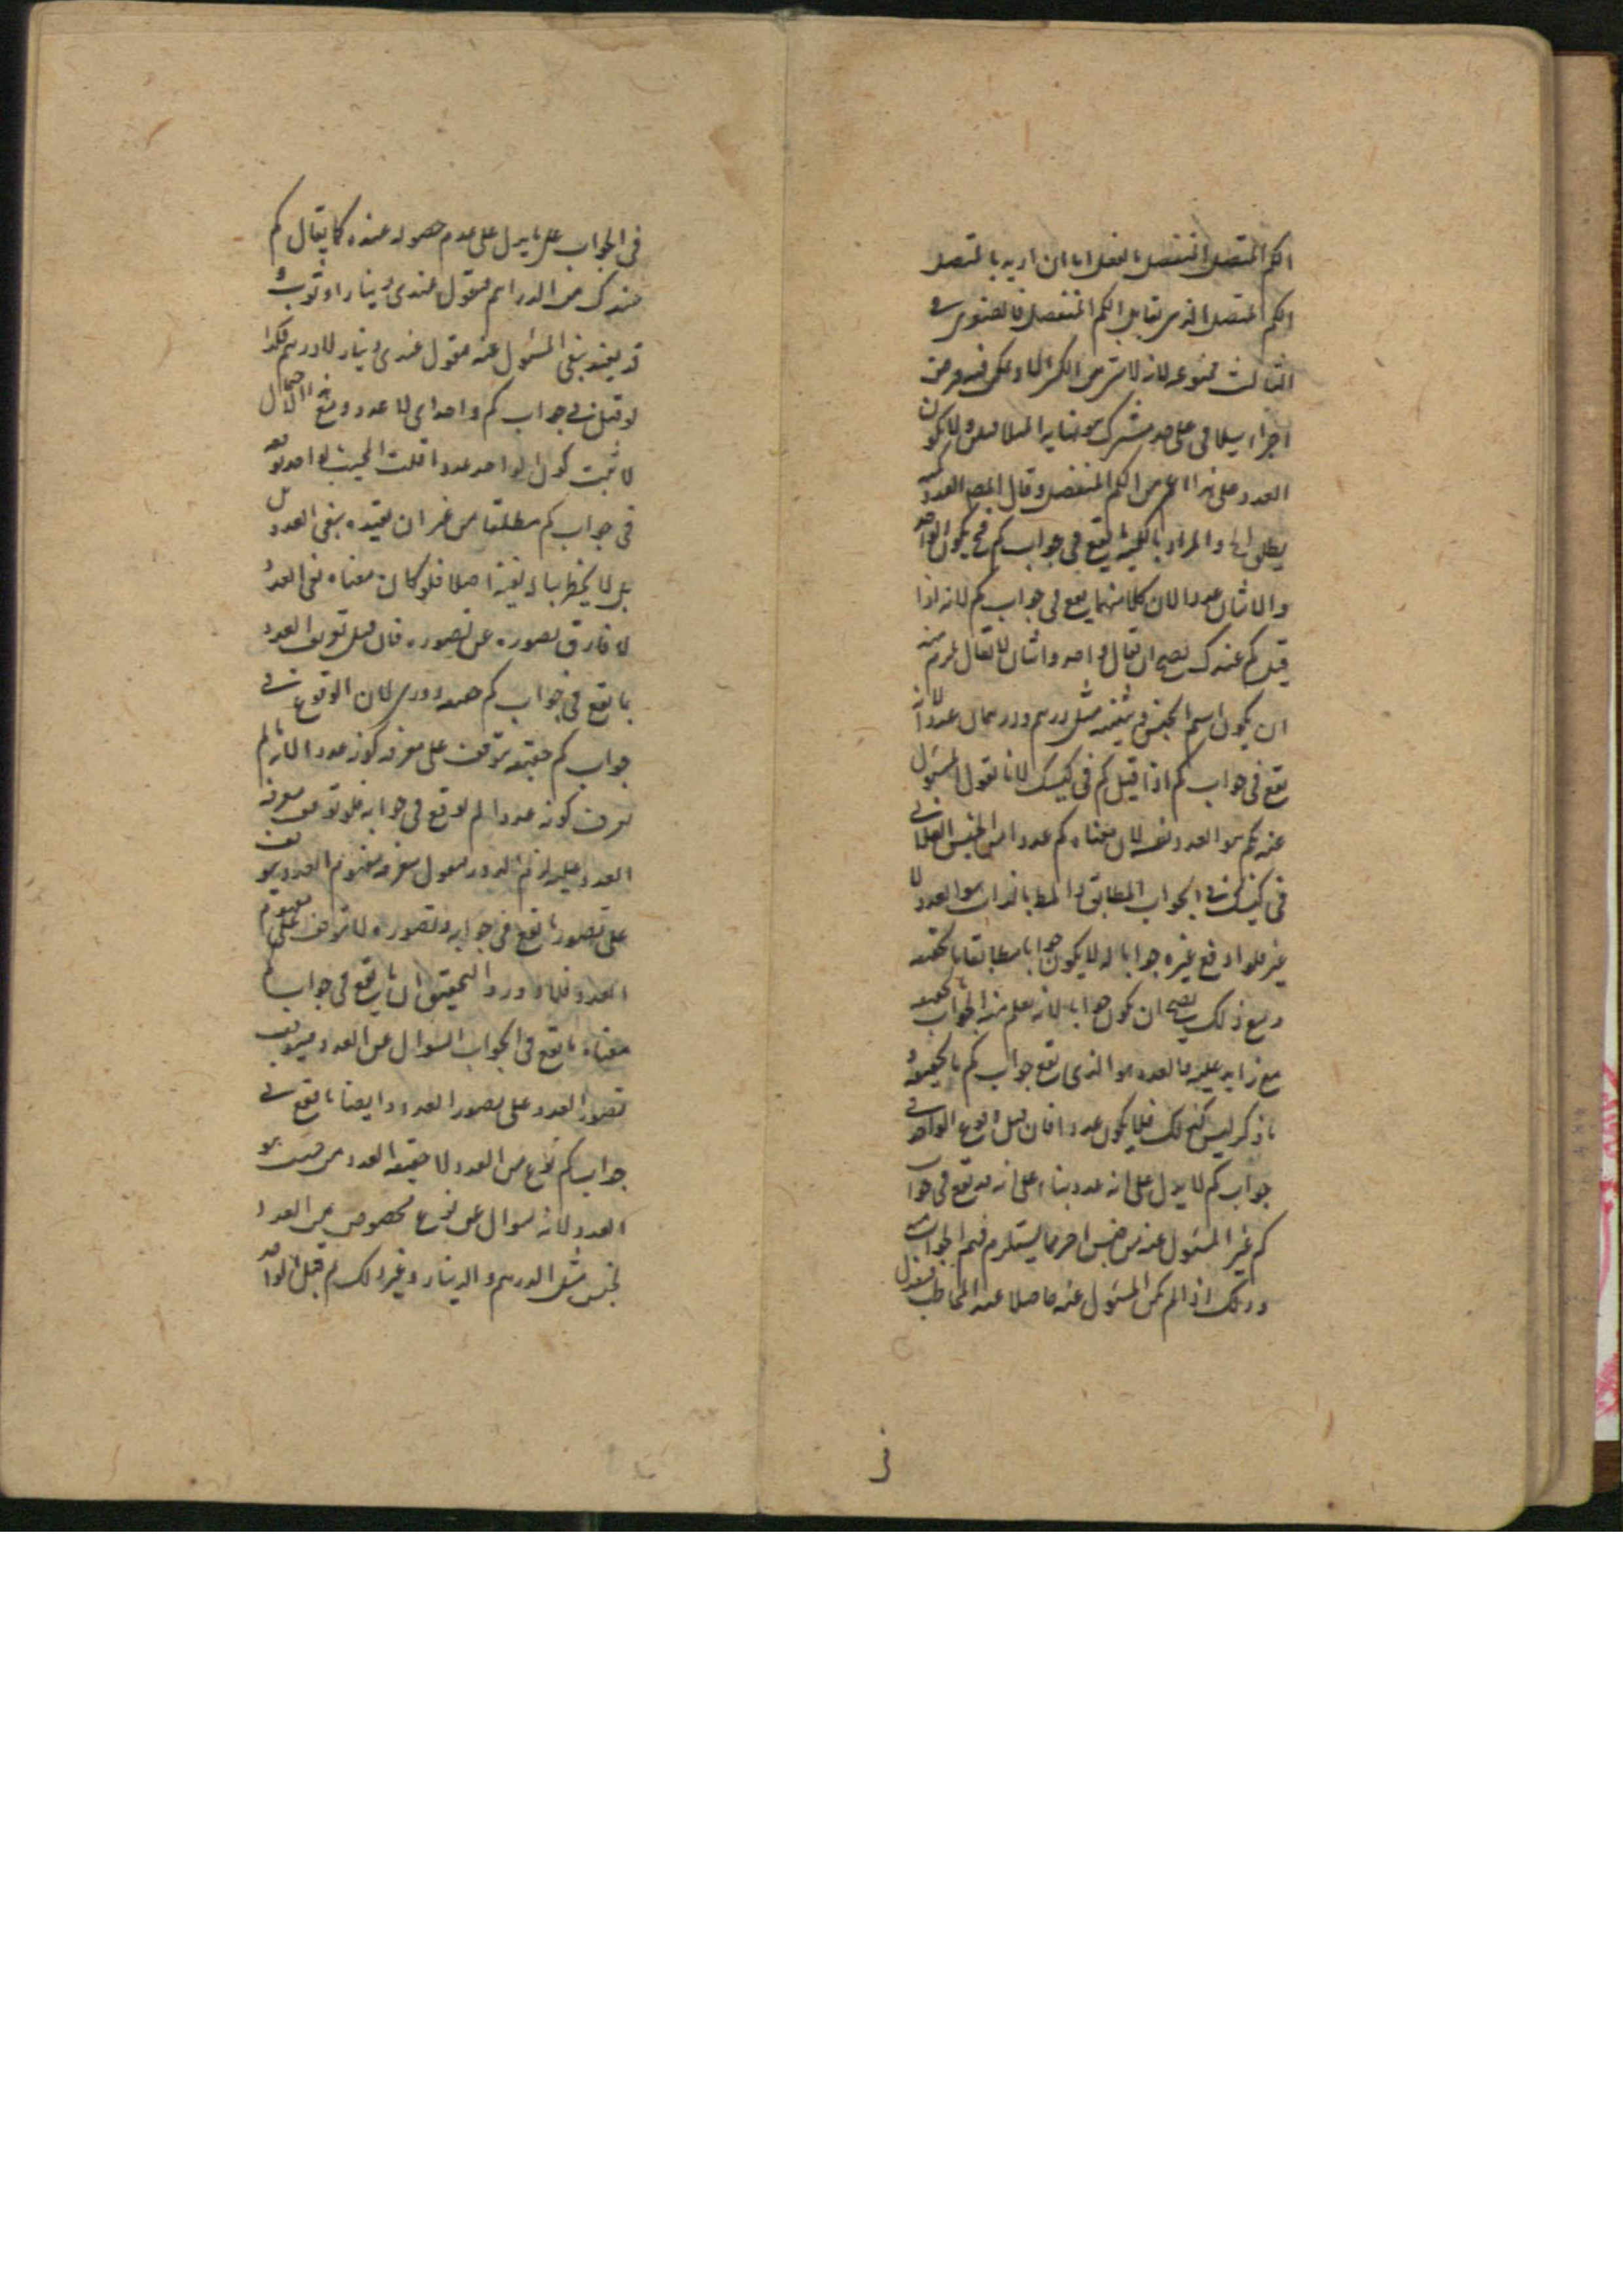 الكم المتصل المنفصل بالفعل اما ان اريد بالمتصل
الكم المتصل الذى يقابل الكم المنفصل فالصغرى
الثالث ممنوعه لانه لا من الكم الا و يمكن فيه فرض
اجزاء يتلاقى على حد مشترك هو نهاية ولا يكون
العدد على هذا اعم من الكم المنفصل وقال المص العدد كمية
يطلق على والمراد بالكمية ما يقع فى جواب كم فح يكون الواحد
والاثنان عددا لان كلا منهما يقع فى جواب كم لانه اذا
قيل كم عندك يصح ان يقال واحد واثنان لا يقال يلزم منه
ان يكون اسم الجنس و تثنيته مثل درهم ودرهمان عددا لانه
يقع فى جواب كم اذا قيل كم فى كيسك لانا نقول المسئول
عنه بكم هو العدد فقط لان معناه كم عددا من الجنس الفلانى
فى كيسك فى الجواب المطابق هو العدد لا
غير فلو وقع غيره جوابا له لا يكون جوابا مطابقا بالحقيقة
ومع ذلك يصح ان يكون جوابا لانه يعلم منه الجواب
مع زايد عليه فالعدد هو الذى يقع جواب كم بالحقيقة و
ما ذكر ليس كذلك فلا يكون عددا فان قيل وقوع الواحد فى
جواب كم لا يدل على انه عدد بناء على انه قد يقع فى جواب
كم غير المسئول عنه من جنس اخر مما يستلزم فهم الجواب منه
وذلك اذا لم يكن المسئول عنه حاصلا عند المخاطب فيقول
فى
فى الجواب على ما يدل على عدم حصوله عنده كما يقال كم
عندك من الدراهم فيقول عندى دينار او ثوب و
قد يقيد بنفى المسئول عنه فيقول عندى دينار لا درهم فكذا
لو قيل فى جواب كم واحد اى لا عدد ومع الاحتمال
لا يثبت كون الواحد عددا قلت المجيب بواحد
فى جواب كم مطلقا من غير ان يقيده بنفى العدد
بل لا يخطر بباله نفيه اصلا فلو كان معناه نفى العدد
لا فارق تصوره عن تصوره فان قيل تعريف العدد
بما يقع فى جواب كم دورى لان الوقوع فى
جواب كم حقيقة يتوقف على معرفة كونه عددا لانه ما لم
يعرف كونه عددا لم يوقع فى جوابه فلو توقف معرفة
العدد عليه لزم الدور نقول معرفة مفهوم العدد يتوقف
على تصور ما يقع فى جوابه و تصوره لا يتوقف على مفهوم
العدد فلا دور والتحقيق ان ما يقع فى جواب كم
معناه ما يقع فى الجواب السؤال عن العدد فيتوقف
تصور العدد على تصور العدد وايضا ما يقع فى
جواب كم نوع من العدد لا حقيقة العدد من حيث هو
العدد لانه سوال عن نوع مخصوص من العدد
لجنس مثل الدرهم والدينار وغير ذلك ثم قيل الواحد